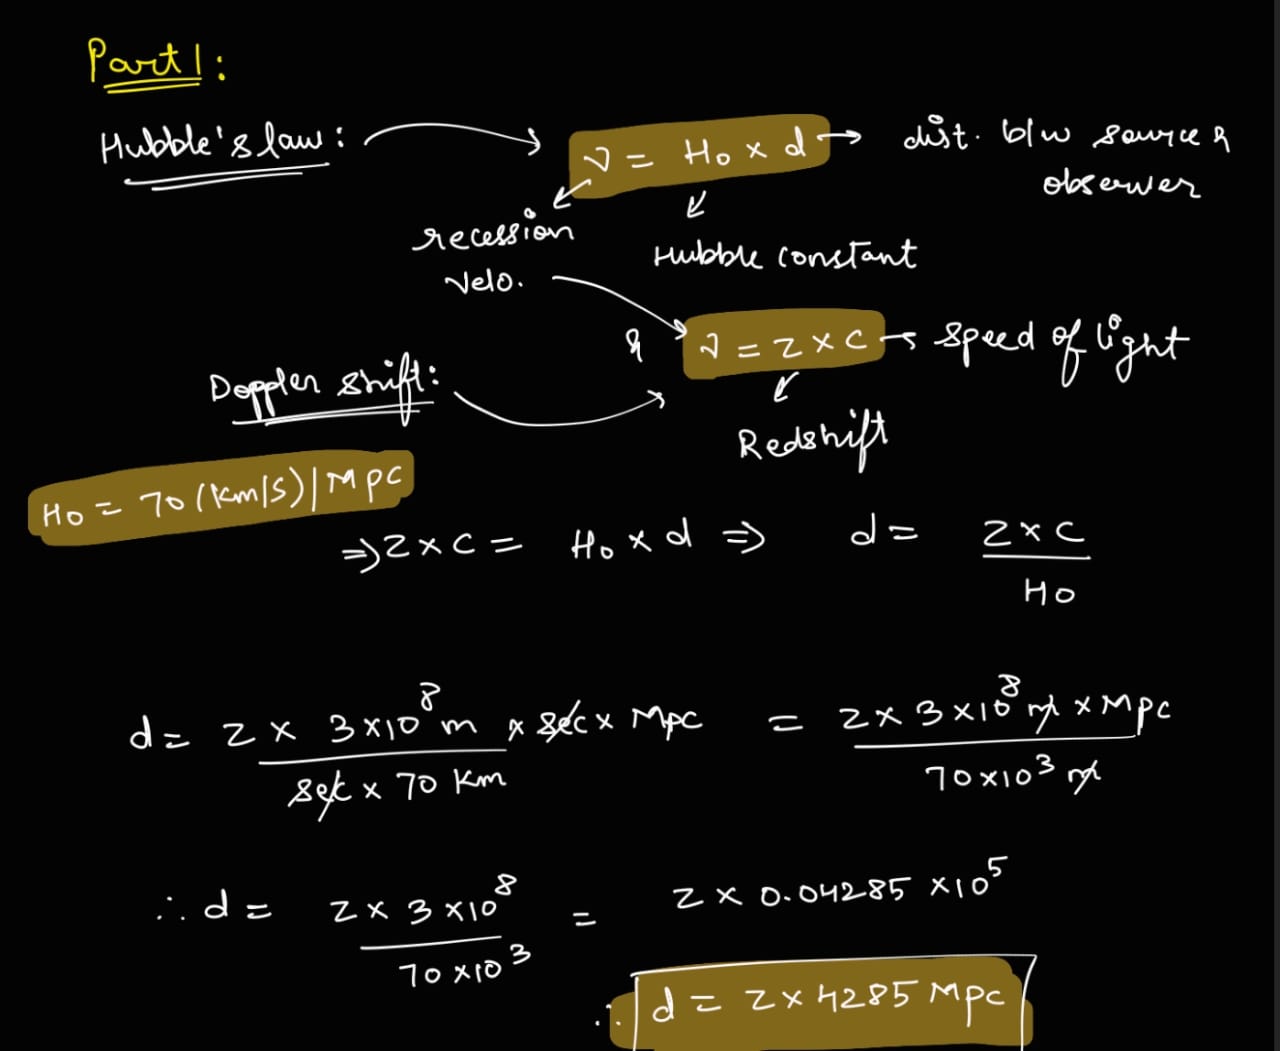 Part 1:
Hubble's law: v = H₀ × d → dist. b/w source &
observer
recession
velo.
Hubble constant
& v = z × c → speed of light
Doppler shift:
Redshift
H₀ = 70 (km/s)/Mpc
⇒ z × c = H₀ × d ⇒ d = z × c / H₀
d = z × 3×10⁸ m / sec × 70 Km × sec × Mpc = z × 3×10⁸ m × Mpc / 70×10³ m
∴ d = z × 3×10⁸ / 70×10³ = z × 0.04285 ×10⁵
∴ d = z × 4285 Mpc